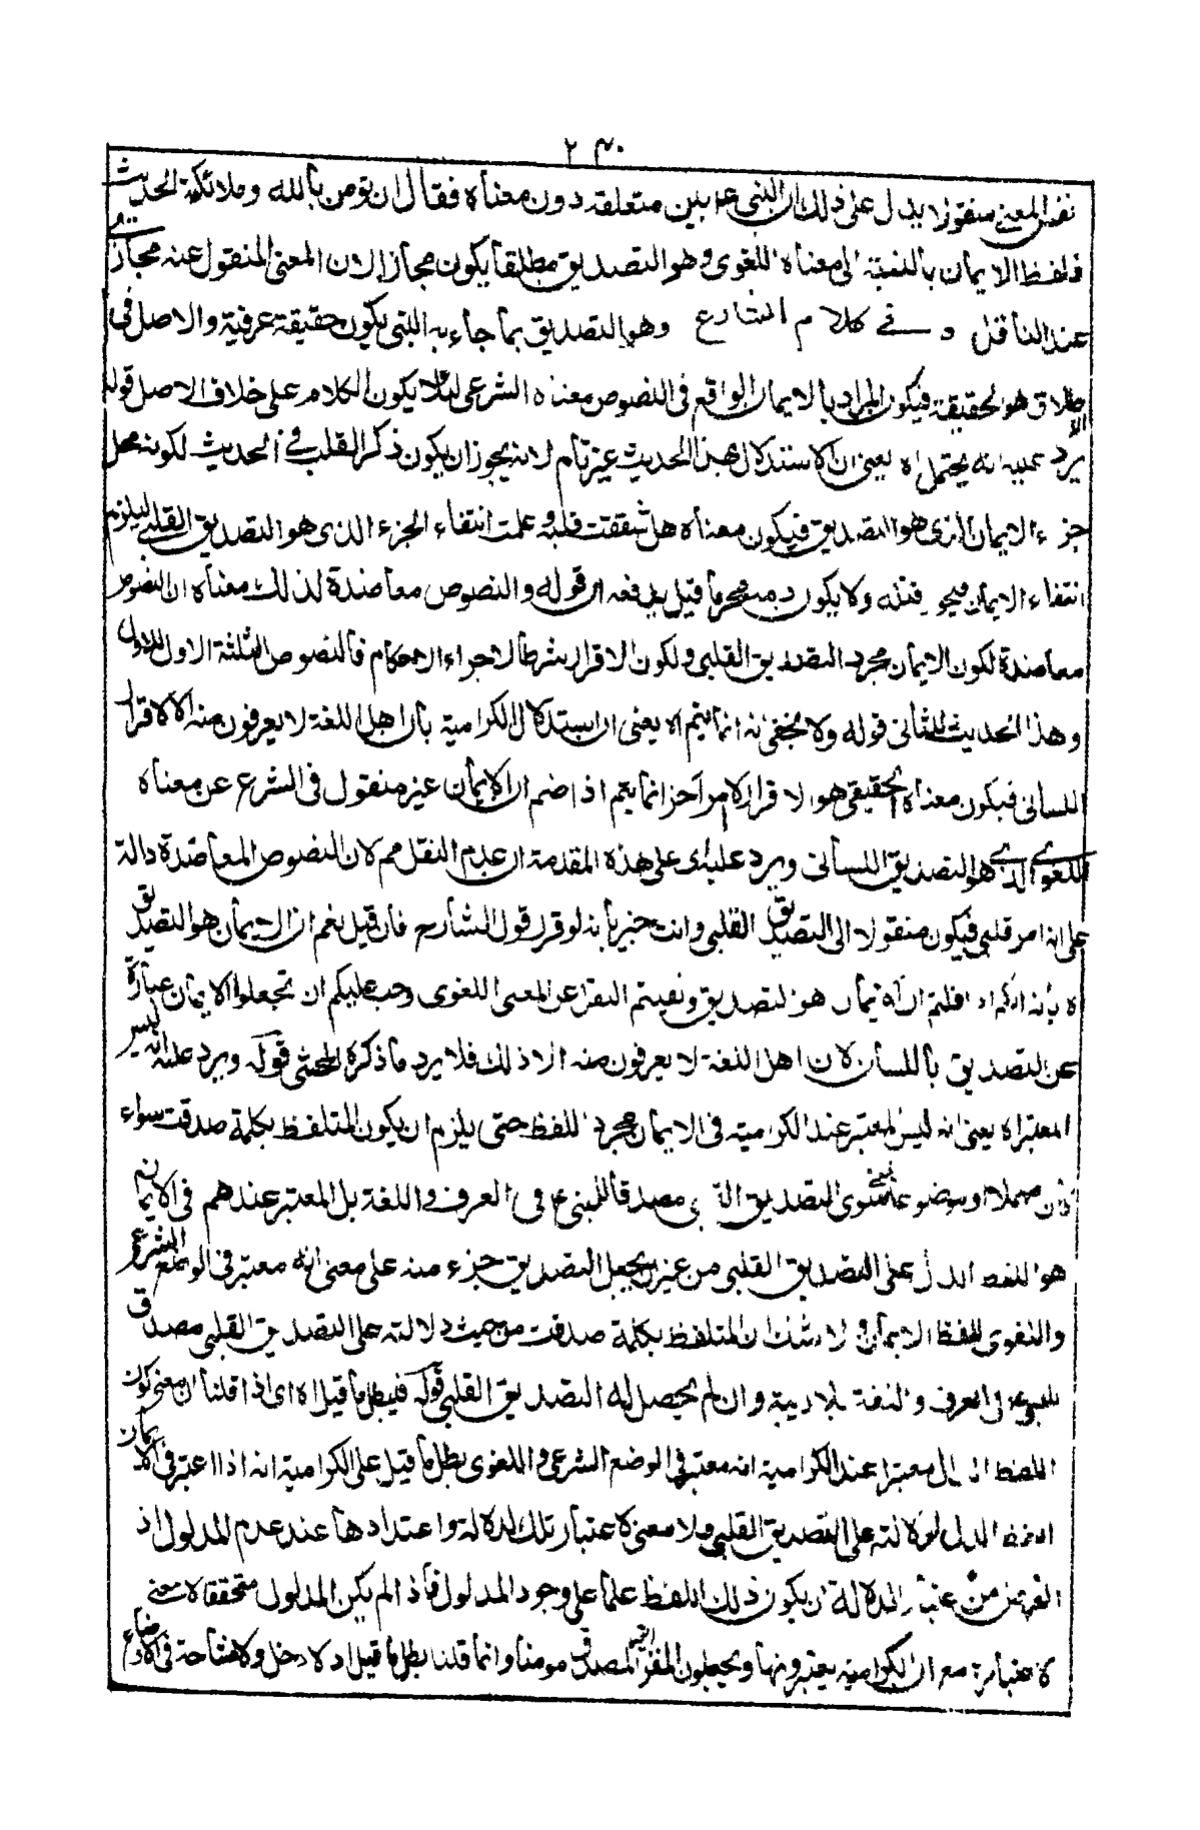 ٢٣٠
نفس المعنى منقولا يدل على ذلك ان النبى عم بين متعلقه دون معناه فقال ان تؤمن بالله وملائكته الحديث
فلفظ الايمان بالنسبة الى معناه اللغوى وهو التصديق مطلقا يكون مجازا لان المعنى المنقول عنه مجاز
عند الناقل و فى كلام الشارع وهو التصديق بما جاء به النبى يكون حقيقة عرفية والاصل فى
الاطلاق هو الحقيقة فيكون المراد بالايمان الواقع فى النصوص معناه الشرعى لئلا يكون الكلام على خلاف الاصل قوله
يرد عليه انه يحتمل اه يعنى ان الاستدلال بهذا الحديث غير تام لانه يجوز ان يكون ذكر القلب فى الحديث لكونه محل
جزء الايمان الذى هو التصديق فيكون معناه هل شققت قلبه وعلمت انتفاء الجزء الذى هو التصديق القلبى ليلزم
انتفاء الايمان فيجوز قتله ولا يكون دمه محرما قيل يدفعه ان قوله والنصوص معاضدة لذلك معناه ان النصوص
معاضدة لكون الايمان مجرد التصديق القلبى ولكون الاقرار شرطا لاجراء الاحكام فالنصوص الثلثة الاول للاول
وهذا الحديث للثانى قوله ولا يخفى انه انما يتم اه يعنى ان استدلال الكرامية بان اهل اللغة لا يعرفون منه الا الاقرار
اللسانى فيكون معناه الحقيقى هو الاقرار لا امر آخر انما يتم اذا ضم ان الايمان غير منقول فى الشرع عن معناه
اللغوى الذى هو التصديق اللسانى ويرد عليه اى على هذه المقدمة ان عدم النقل مم لان النصوص المعاضدة دالة
على انه امر قلبى فيكون منقولا الى التصديق القلبى وانت خبير بانه لو قرر قول الشارح فان قيل نعم ان الايمان هو التصديق
اه بانه انكم اذا قلتم ان الايمان هو التصديق ونفيتم النقل عن المعنى اللغوى وجب عليكم ان تجعلوا الايمان عبارة
عن التصديق باللسان لان اهل اللغة لا يعرفون منه الا ذلك فلا يرد ما ذكره المحشى قوله ويرد عليه انه ليس
المعتبر اه يعنى انه ليس المعتبر عند الكرامية فى الايمان مجرد اللفظ حتى يلزم ان يكون المتلفظ بكلمة صدقت سواء
كان مهملا او موضوعا لمعنى سوى التصديق القلبى مصدقا للنبى ع م فى العرف واللغة بل المعتبر عندهم فى الايمان
هو اللفظ الدال على التصديق القلبى من غير ان يجعل التصديق جزء منه على معنى انه معتبر فى الوضع الشرعى
واللغوى للفظ الايمان ولا شك ان المتلفظ بكلمة صدقت من حيث دلالته على التصديق القلبى مصدق
للنبى عم فى العرف واللغة بلا ريبة وان لم يحصل له التصديق القلبى قوله فبطل ما قيل اه اى اذا قلنا ان معنى كون
اللفظ الدال معتبرا عند الكرامية انه معتبر فى الوضع الشرعى واللغوى بطل ما قيل على الكرامية انه اذا اعتبر فى الايمان
اللفظ الدال لدلالته على التصديق القلبى ولا معنى لاعتبار تلك الدلالة واعتدادها عند عدم المدلول اذ
الغرض من اعتبار الدلالة ان يكون ذلك اللفظ علما على وجود المدلول فاذا لم يكن المدلول متحققا لا معنى
لاعتباره مع ان الكرامية يعتبرونها ويجعلون المقر الغير المصدق مؤمنا وانما قلنا بطل ما قيل اذ لا دخل ولا مشاحة فى الاوضاع